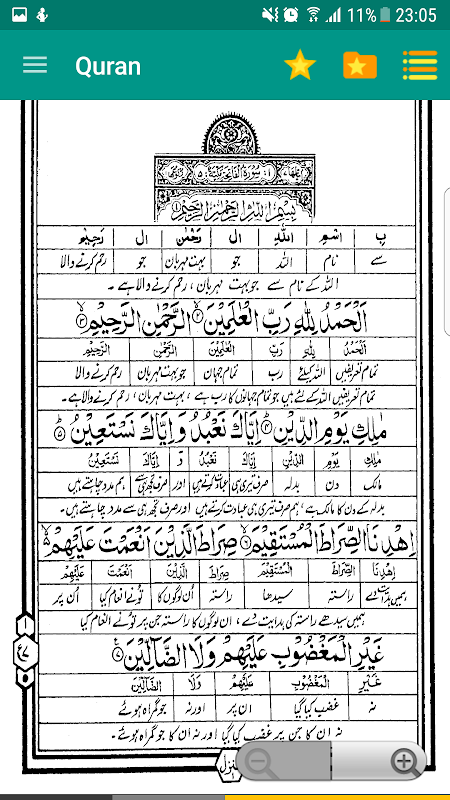 11% 23:05
Quran
١ سُوْرَةُ الْفَاتِحَةِ مَكِّيَّةٌ ٥
بِسْمِ اللّٰهِ الرَّحْمٰنِ الرَّحِيْمِ
بِ اسْمِ اللّٰهِ ال رَحْمٰن ال رَحِيْمِ
سے نام اللہ جو بہت مہربان جو رحم کرنے والا
اللہ کے نام سے جو بہت مہربان ، رحم کرنے والا ہے ۔
اَلْحَمْدُ لِلّٰهِ رَبِّ الْعٰلَمِيْنَ ۙ﴿۲﴾ الرَّحْمٰنِ الرَّحِيْمِ ۙ﴿۳﴾
اَلْحَمْدُ لِلّٰهِ رَبِّ الْعٰلَمِيْنَ الرَّحْمٰنِ الرَّحِيْمِ
تمام تعریفیں اللہ کیلئے رب تمام جہان جو بہت مہربان رحم کرنے والا
تمام تعریفیں اللہ کے لئے ہیں جو تمام جہانوں کا رب ہے ، بہت مہربان ، رحم کرنے والا ہے۔
مٰلِكِ يَوْمِ الدِّيْنِ ﴿۴﴾ اِيَّاكَ نَعْبُدُ وَاِيَّاكَ نَسْتَعِيْنُ ﴿۵﴾
مٰلِكِ يَوْمِ الدِّيْنِ اِيَّاكَ نَعْبُدُ وَ اِيَّاكَ نَسْتَعِيْنُ
مالک دن بدلہ صرف تیری ہی عبادت کرتے ہیں اور صرف تجھ ہی سے ہم مدد چاہتے ہیں
بدلہ کے دن کا مالک ہے ، ہم صرف تیری ہی عبادت کرتے ہیں اور صرف تجھ ہی سے مدد چاہتے ہیں۔
اِهْدِنَا الصِّرَاطَ الْمُسْتَقِيْمَ ۙ﴿۶﴾ صِرَاطَ الَّذِيْنَ اَنْعَمْتَ عَلَيْهِمْ
اِهْدِنَا الصِّرَاطَ الْمُسْتَقِيْمَ صِرَاطَ الَّذِيْنَ اَنْعَمْتَ عَلَيْهِمْ
ہمیں ہدایت دے راستہ سیدھا راستہ اُن لوگوں کا تُونے انعام کیا اُن پر
ہمیں سیدھے راستہ کی ہدایت دے ، ان لوگوں کا راستہ جن پر تُونے انعام کیا
غَيْرِ الْمَغْضُوْبِ عَلَيْهِمْ وَلَا الضَّآلِّيْنَ ﴿۷﴾
غَيْرِ الْمَغْضُوْبِ عَلَيْهِمْ وَلَا الضَّآلِّيْنَ
نہ غضب کیا گیا ان پر اور نہ جو گمراہ ہوئے
نہ ان کا جن پر غضب کیا گیا اور نہ ان کا جو گمراہ ہوئے۔
منزل